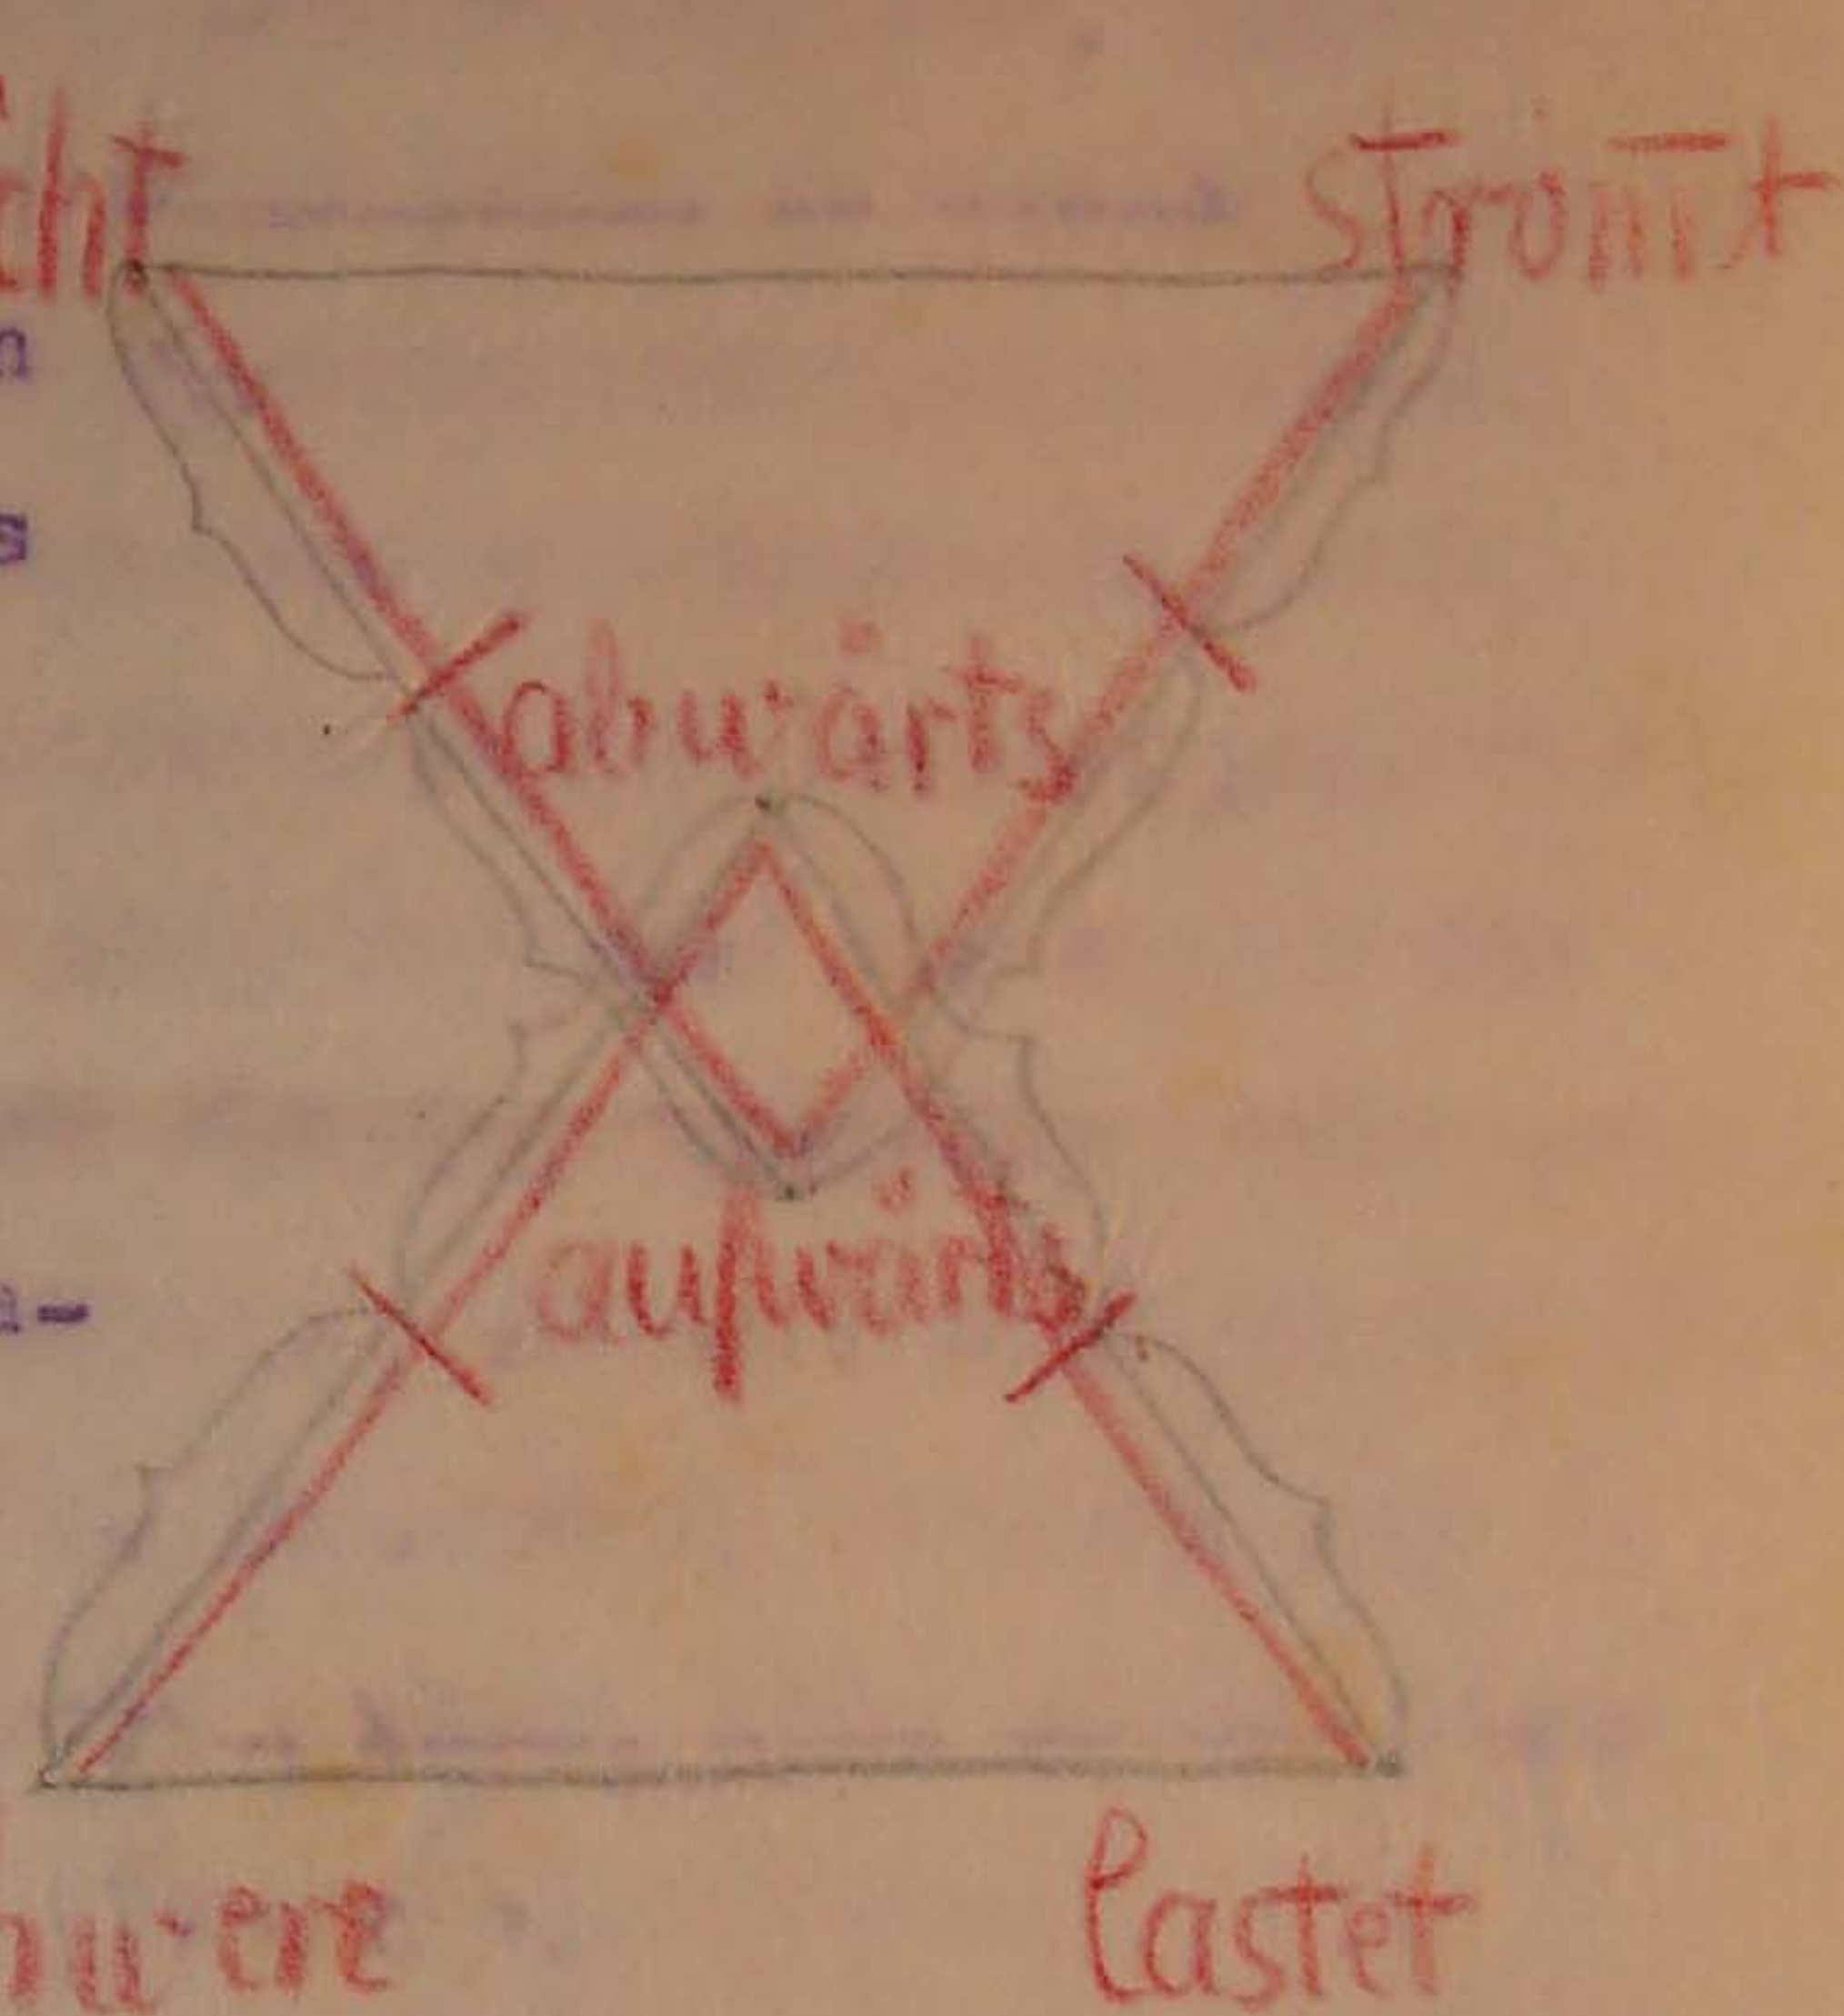 cht strömt
n
s
abwärts
aufwärts
-
were lastet